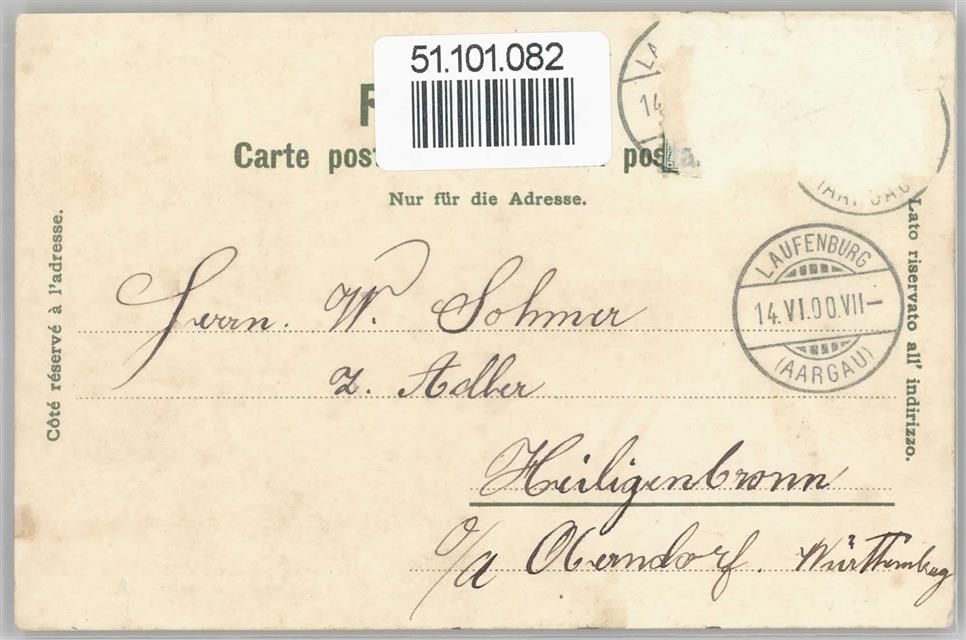 51.101.082
Carte post
posta.
Nur für die Adresse.
Côté réservé à l'adresse.
Lato riservato all' indirizzo.
LAUFENBURG
14.VI.00.VII–
(AARGAU)
Herrn. W. Sohmer
z. Adler
Heiligenbronn
o/a Oberndorf. Württemberg